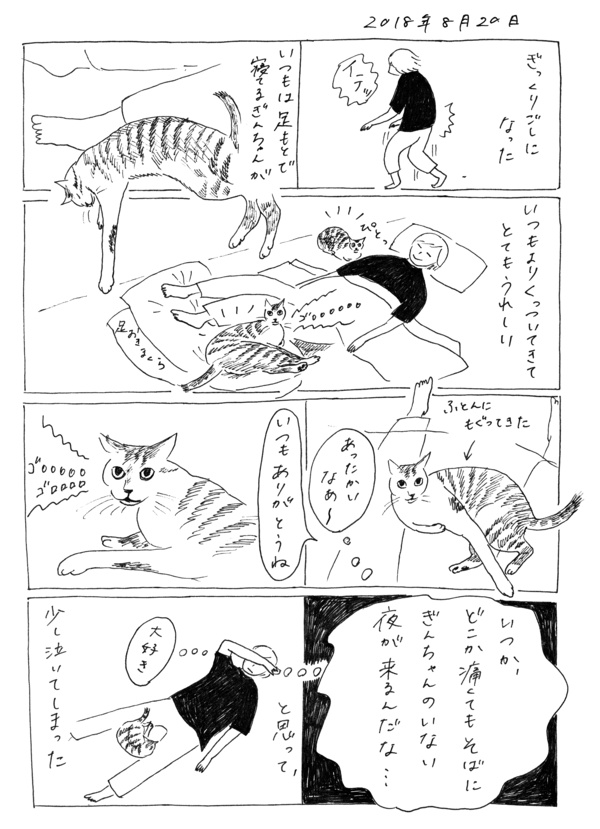 2018年8月20日
ぎっくりごしに
なった
イテッ
いつもは足もとで
寝てるぎんちゃんが
いつもよりくっついてきて
とてもうれしい
ぴとっ
ゴロロロロロロ
足おきまくら
ふとんに
もぐってきた
あったかい
なぁ〜
いつもありがとうね
ゴロロロロロ
ゴロロロロ
いつか、
どこか痛くてもそばに
ぎんちゃんのいない
夜が来るんだな…
と思って、
大好き
少し泣いてしまった